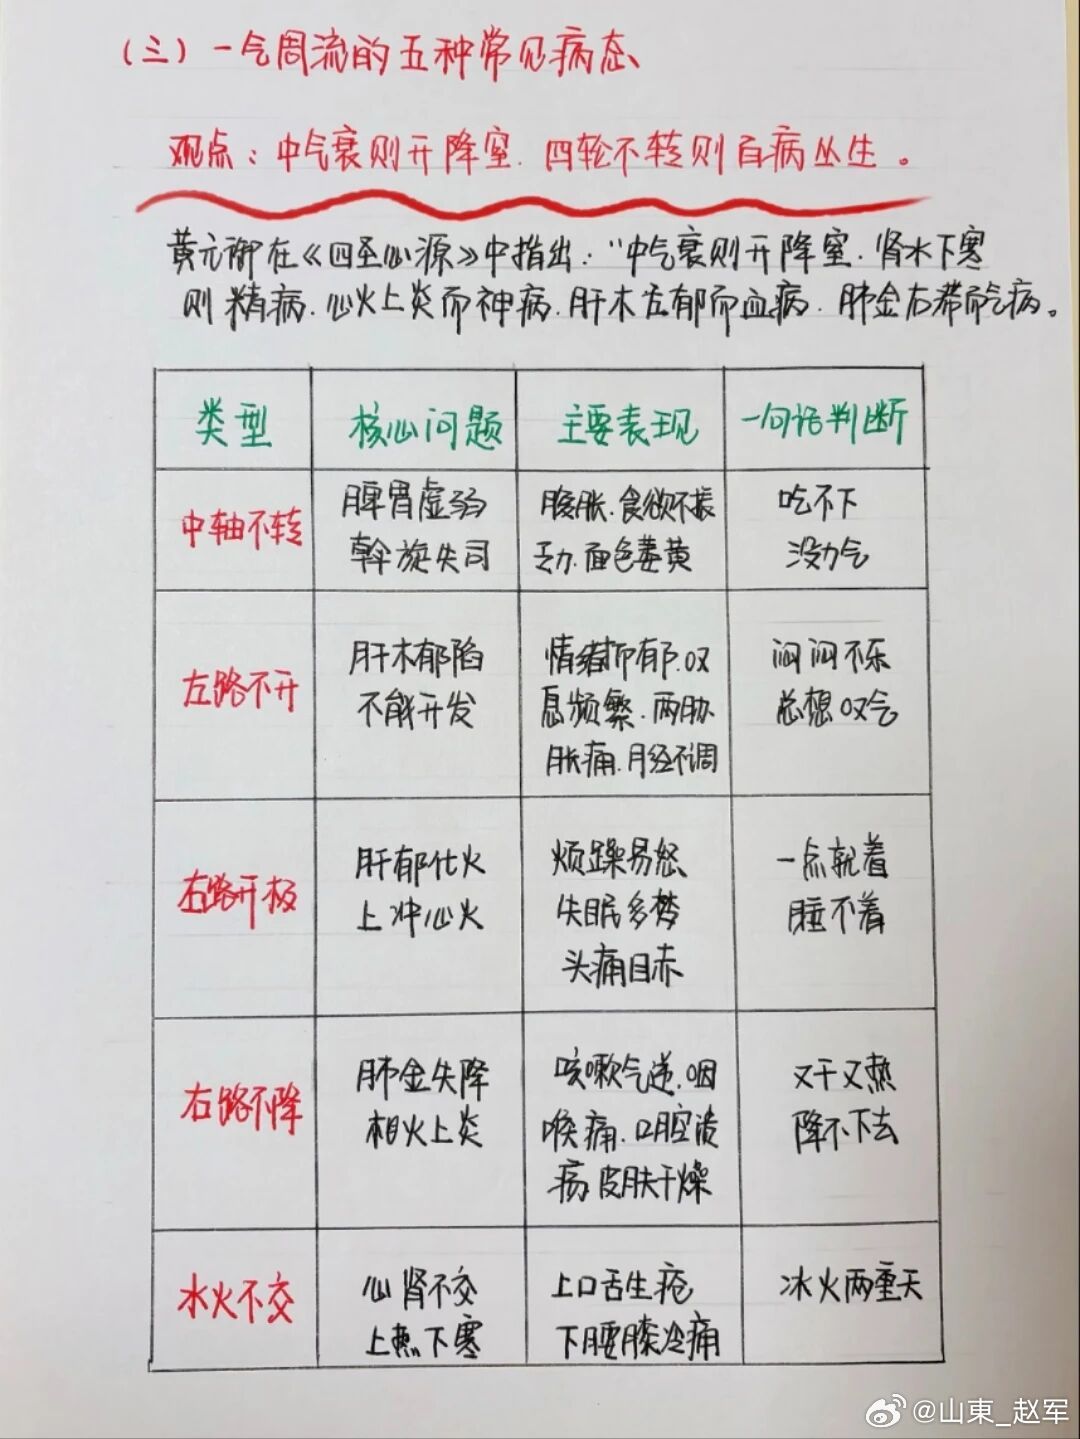 （三）一气周流的五种常见病态
观点：中气衰则升降窒．四轮不转则百病丛生。
黄元御在《四圣心源》中指出：“中气衰则升降窒．肾水下寒
则精病．心火上炎而神病．肝木左郁而血病．肺金右滞而气病。
类型 核心问题 主要表现 一句话判断
中轴不转
脾胃虚弱
斡旋失司
腹胀．食欲不振
乏力．面色萎黄
吃不下
没力气
左路不升
肝木郁陷
不能升发
情绪抑郁．叹
息频繁．两胁
胀痛．月经不调
闷闷不乐
总想叹气
左路升极
肝郁化火
上冲心火
烦躁易怒
失眠多梦
头痛目赤
一点就着
睡不着
右路不降
肺金失降
相火上炎
咳嗽气逆．咽
喉痛．口腔溃
疡皮肤干燥
又干又热
降不下去
水火不交
心肾不交
上热下寒
上口舌生疮
下腰膝冷痛
冰火两重天
@山東_赵军